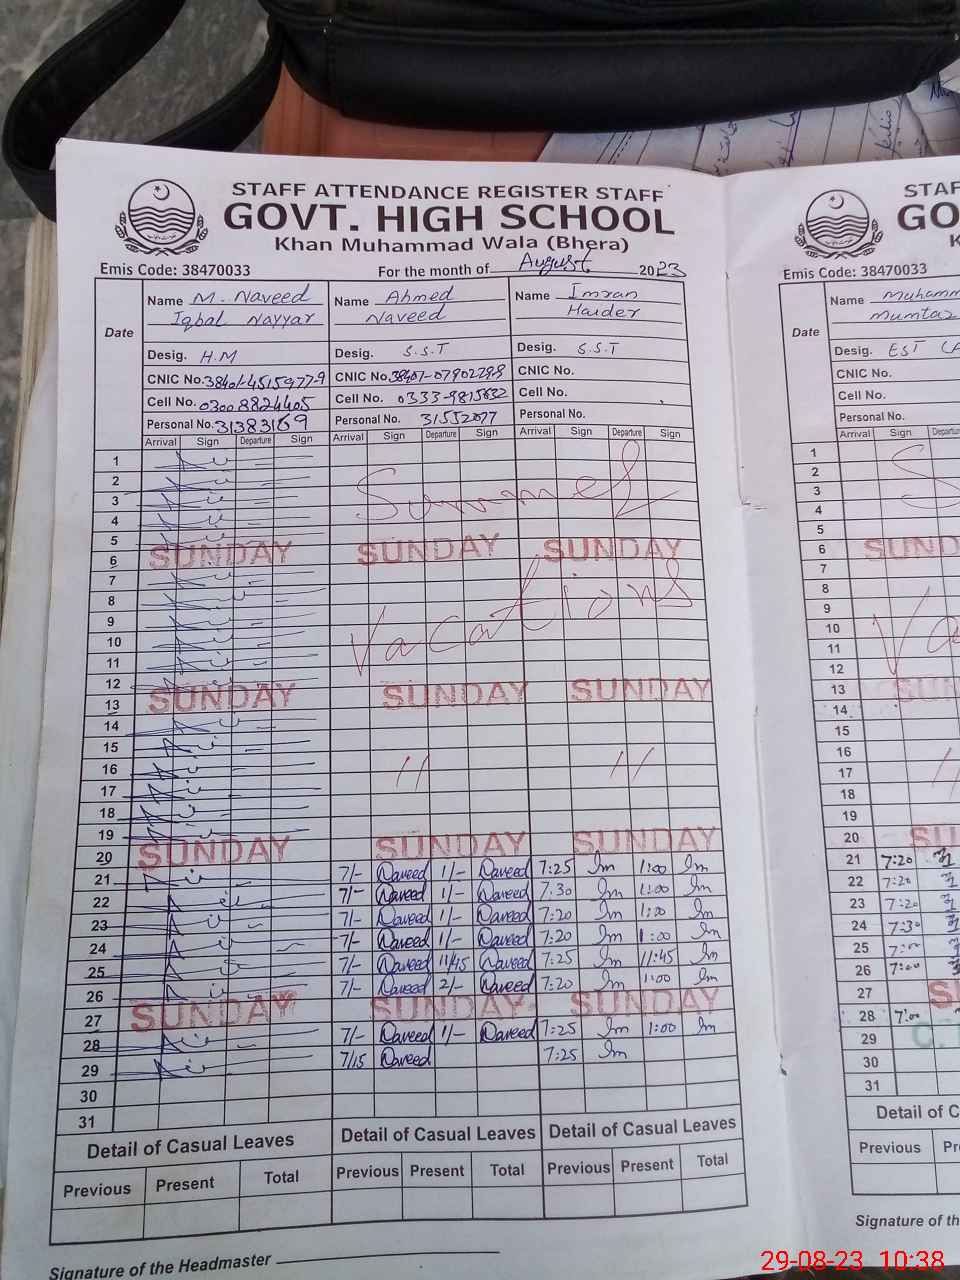 STAFF ATTENDANCE REGISTER STAFF
GOVT. HIGH SCHOOL
Khan Muhammad Wala (Bhera)
Emis Code: 38470033 For the month of August 2023
Date
Name M. Naveed Name Ahmed Name Imran
Iqbal Nayyar Naveed Haider
Desig. H.M Desig. S.S.T Desig. S.S.T
CNIC No. 38401-4515977-9 CNIC No. 38401-0790279-9 CNIC No.
Cell No. 0300 8824405 Cell No. 0333-9815832 Cell No.
Personal No. 31383169 Personal No. 31552077 Personal No.
Arrival Sign Departure Sign Arrival Sign Departure Sign Arrival Sign Departure Sign
1
2
3 Summer
4
5
6 SUNDAY SUNDAY SUNDAY
7
8
9 Vacations
10
11
12
13 SUNDAY SUNDAY SUNDAY
14
15
16 11 11
17
18
19
20 SUNDAY SUNDAY SUNDAY
21 7/- Naveed 1/- Naveed 7:25 Im 1:00 Im
22 7/- Naveed 1/- Naveed 7:30 Im 1:00 Im
23 7/- Naveed 1/- Naveed 7:20 Im 1:00 Im
24 7/- Naveed 1/- Naveed 7:20 Im 1:00 Im
25 7/- Naveed 11/45 Naveed 7:25 Im 11:45 Im
26 7/- Naveed 2/- Naveed 7:20 Im 1:00 Im
27 SUNDAY SUNDAY SUNDAY
28 7/- Naveed 1/- Naveed 7:25 Im 1:00 Im
29 7/15 Naveed 7:25 Im
30
31
Detail of Casual Leaves Detail of Casual Leaves Detail of Casual Leaves
Previous Present Total Previous Present Total Previous Present Total
Signature of the Headmaster
STAF
GO
K
Emis Code: 38470033
Date
Name Muhamm
Mumtaz
Desig. EST
CNIC No.
Cell No.
Personal No.
Arrival Sign Departu
1
2
3
4
5
6 SUND
7
8
9
10 Va
11
12
13 SUN
14
15
16
17
18
19
20 SU
21 7:20
22 7:20
23 7:20
24 7:30
25 7:00
26 7:00
27 S
28 7:00
29 C.
30
31
Detail of C
Previous Pr
Signature of th
29-08-23 10:38